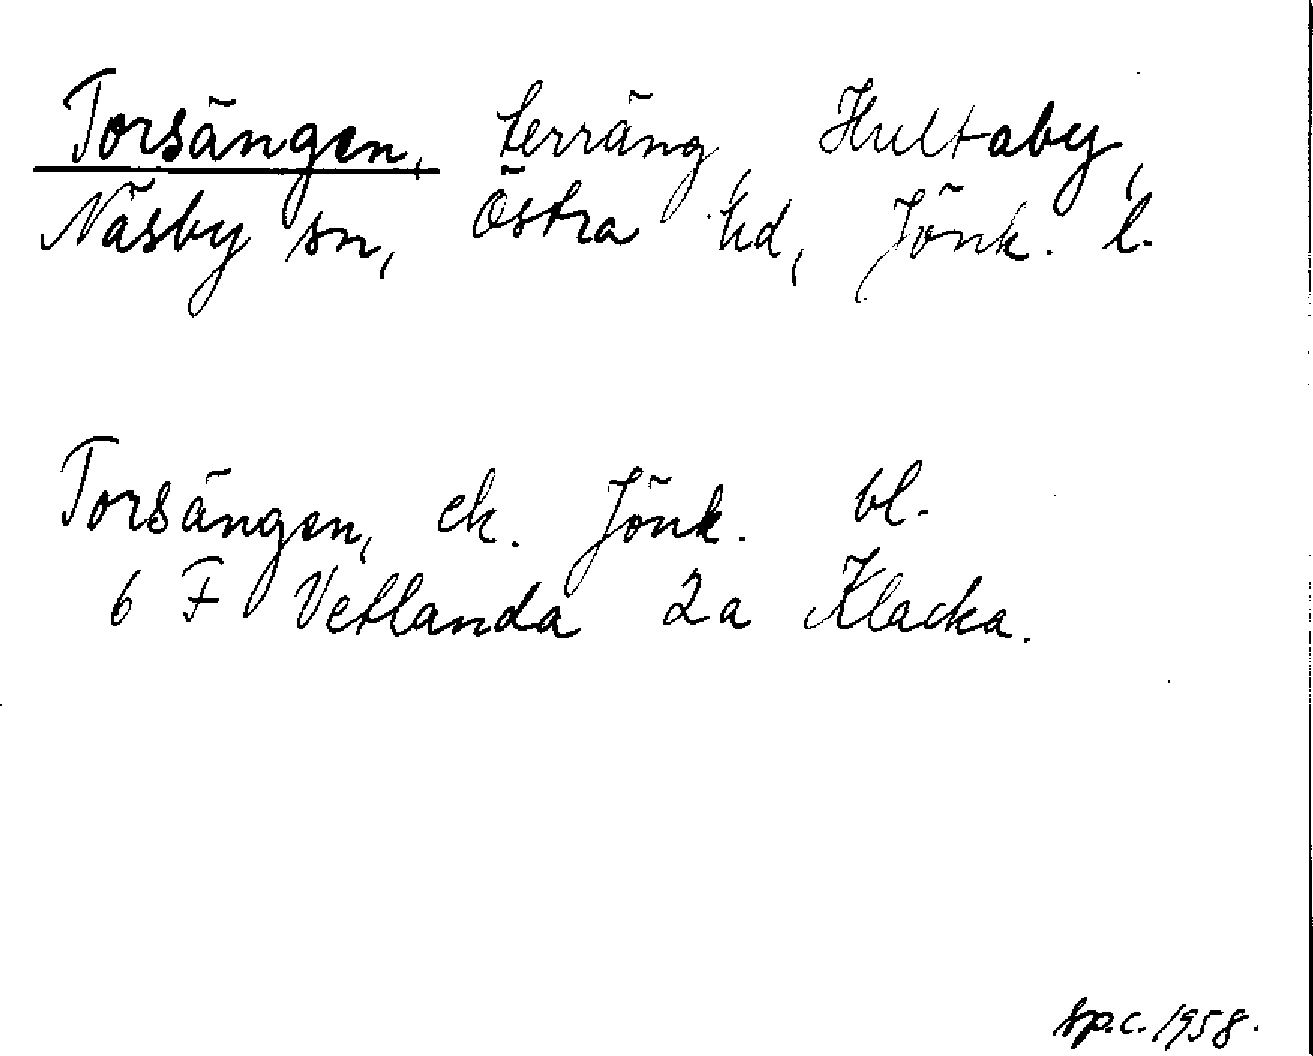 Torsängen, terräng, Hultaby,
Näsby sn, Östra hd, Jönk. l.
Torsängen, ek. Jönk. bl.
6 F Vetlanda 2a Klacka.
sp.c. 1958.